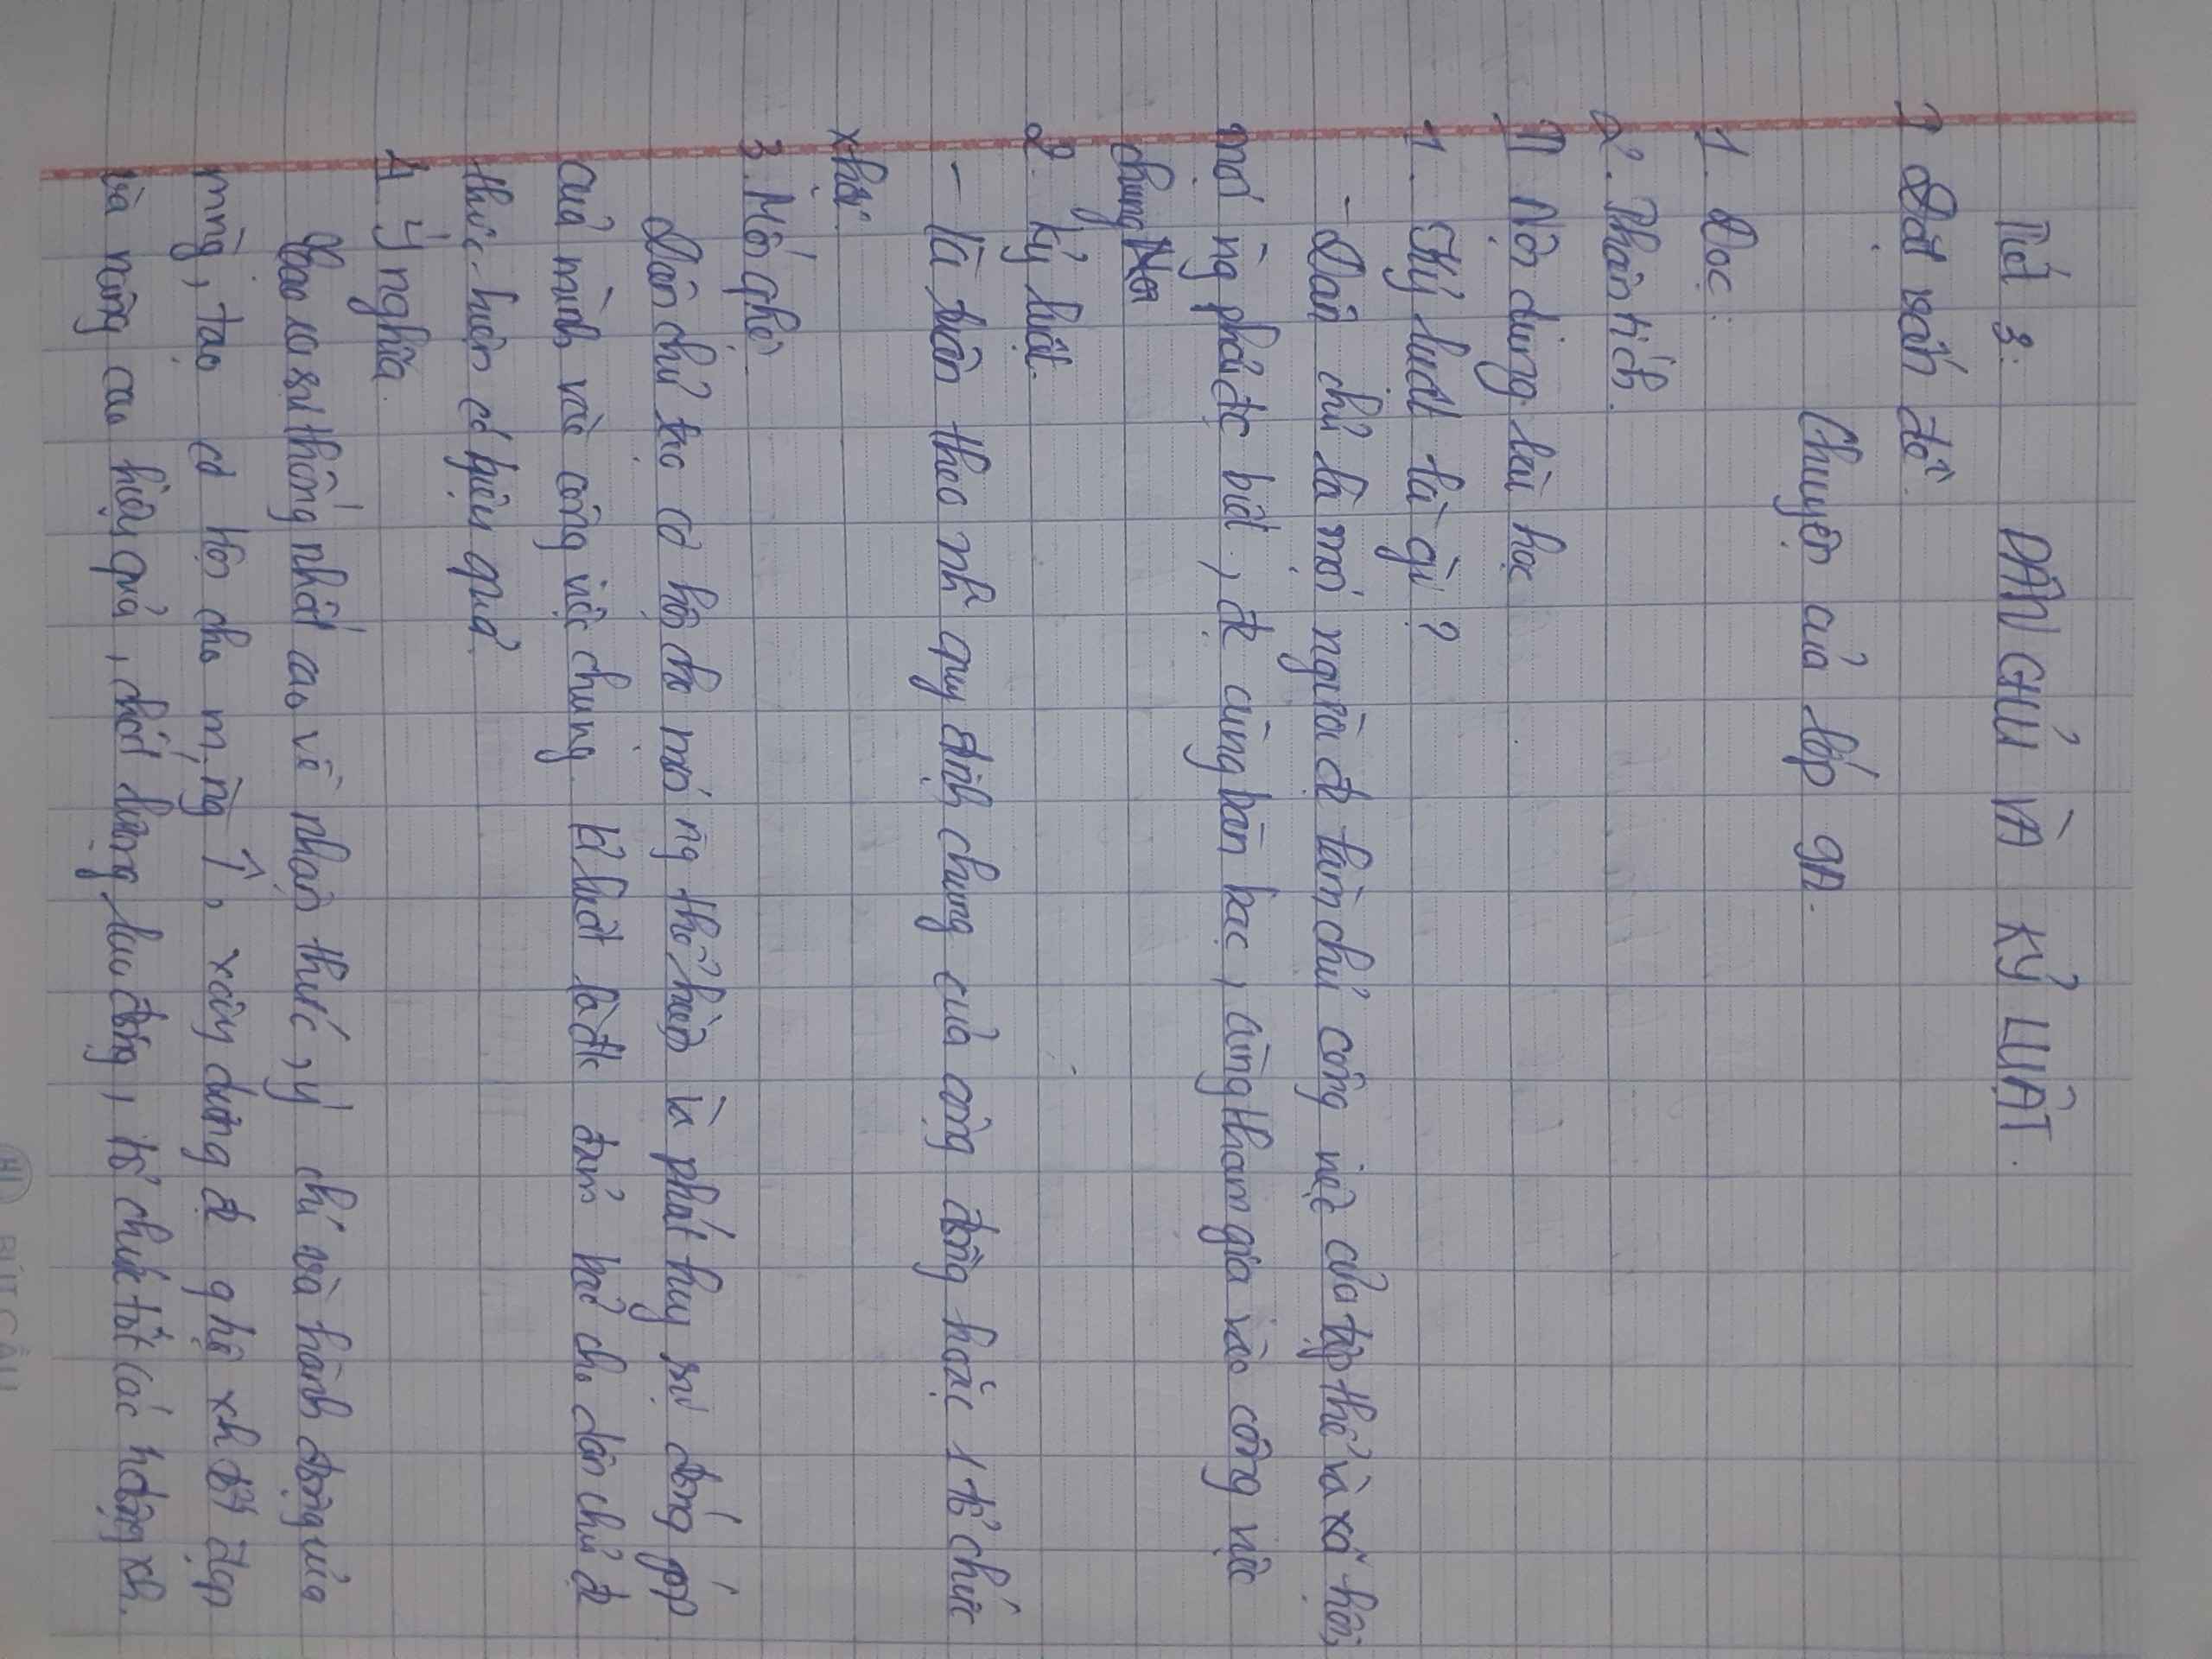 Tiết 3: DÂN CHỦ VÀ KỶ LUẬT.
I Đặt vấn đề.
Chuyện của lớp 9A.
1. Đọc:
2. Phân tích.
II Nội dung bài học
1. Kỷ luật là gì?
- Dân chủ là mọi người đc làm chủ công việc của tập thể và xã hội,
mọi ng phải đc biết, đc cùng bàn bạc, cùng tham gia vào công việc
chung
2. Kỷ luật.
- Là tuân theo nh~ quy định chung của cộng đồng hoặc 1 tổ chức
xhội.
3. Mối qhệ
Dân chủ tạo cơ hội cho mọi ng thể hiện và phát huy sự đóng góp
của mình vào công việc chung. Kỉ luật là đk đảm bảo cho dân chủ đc
thực hiện có hiệu quả.
4. Ý nghĩa.
Tạo ra sự thống nhất cao về nhận thức, ý chí và hành động của
mng, tạo cơ hội cho mng xây dựng đc qhệ xh tốt đẹp
và nâng cao hiệu quả, chất lượng lao động, tổ chức tốt các hđộng xh.
BÚT CÂU